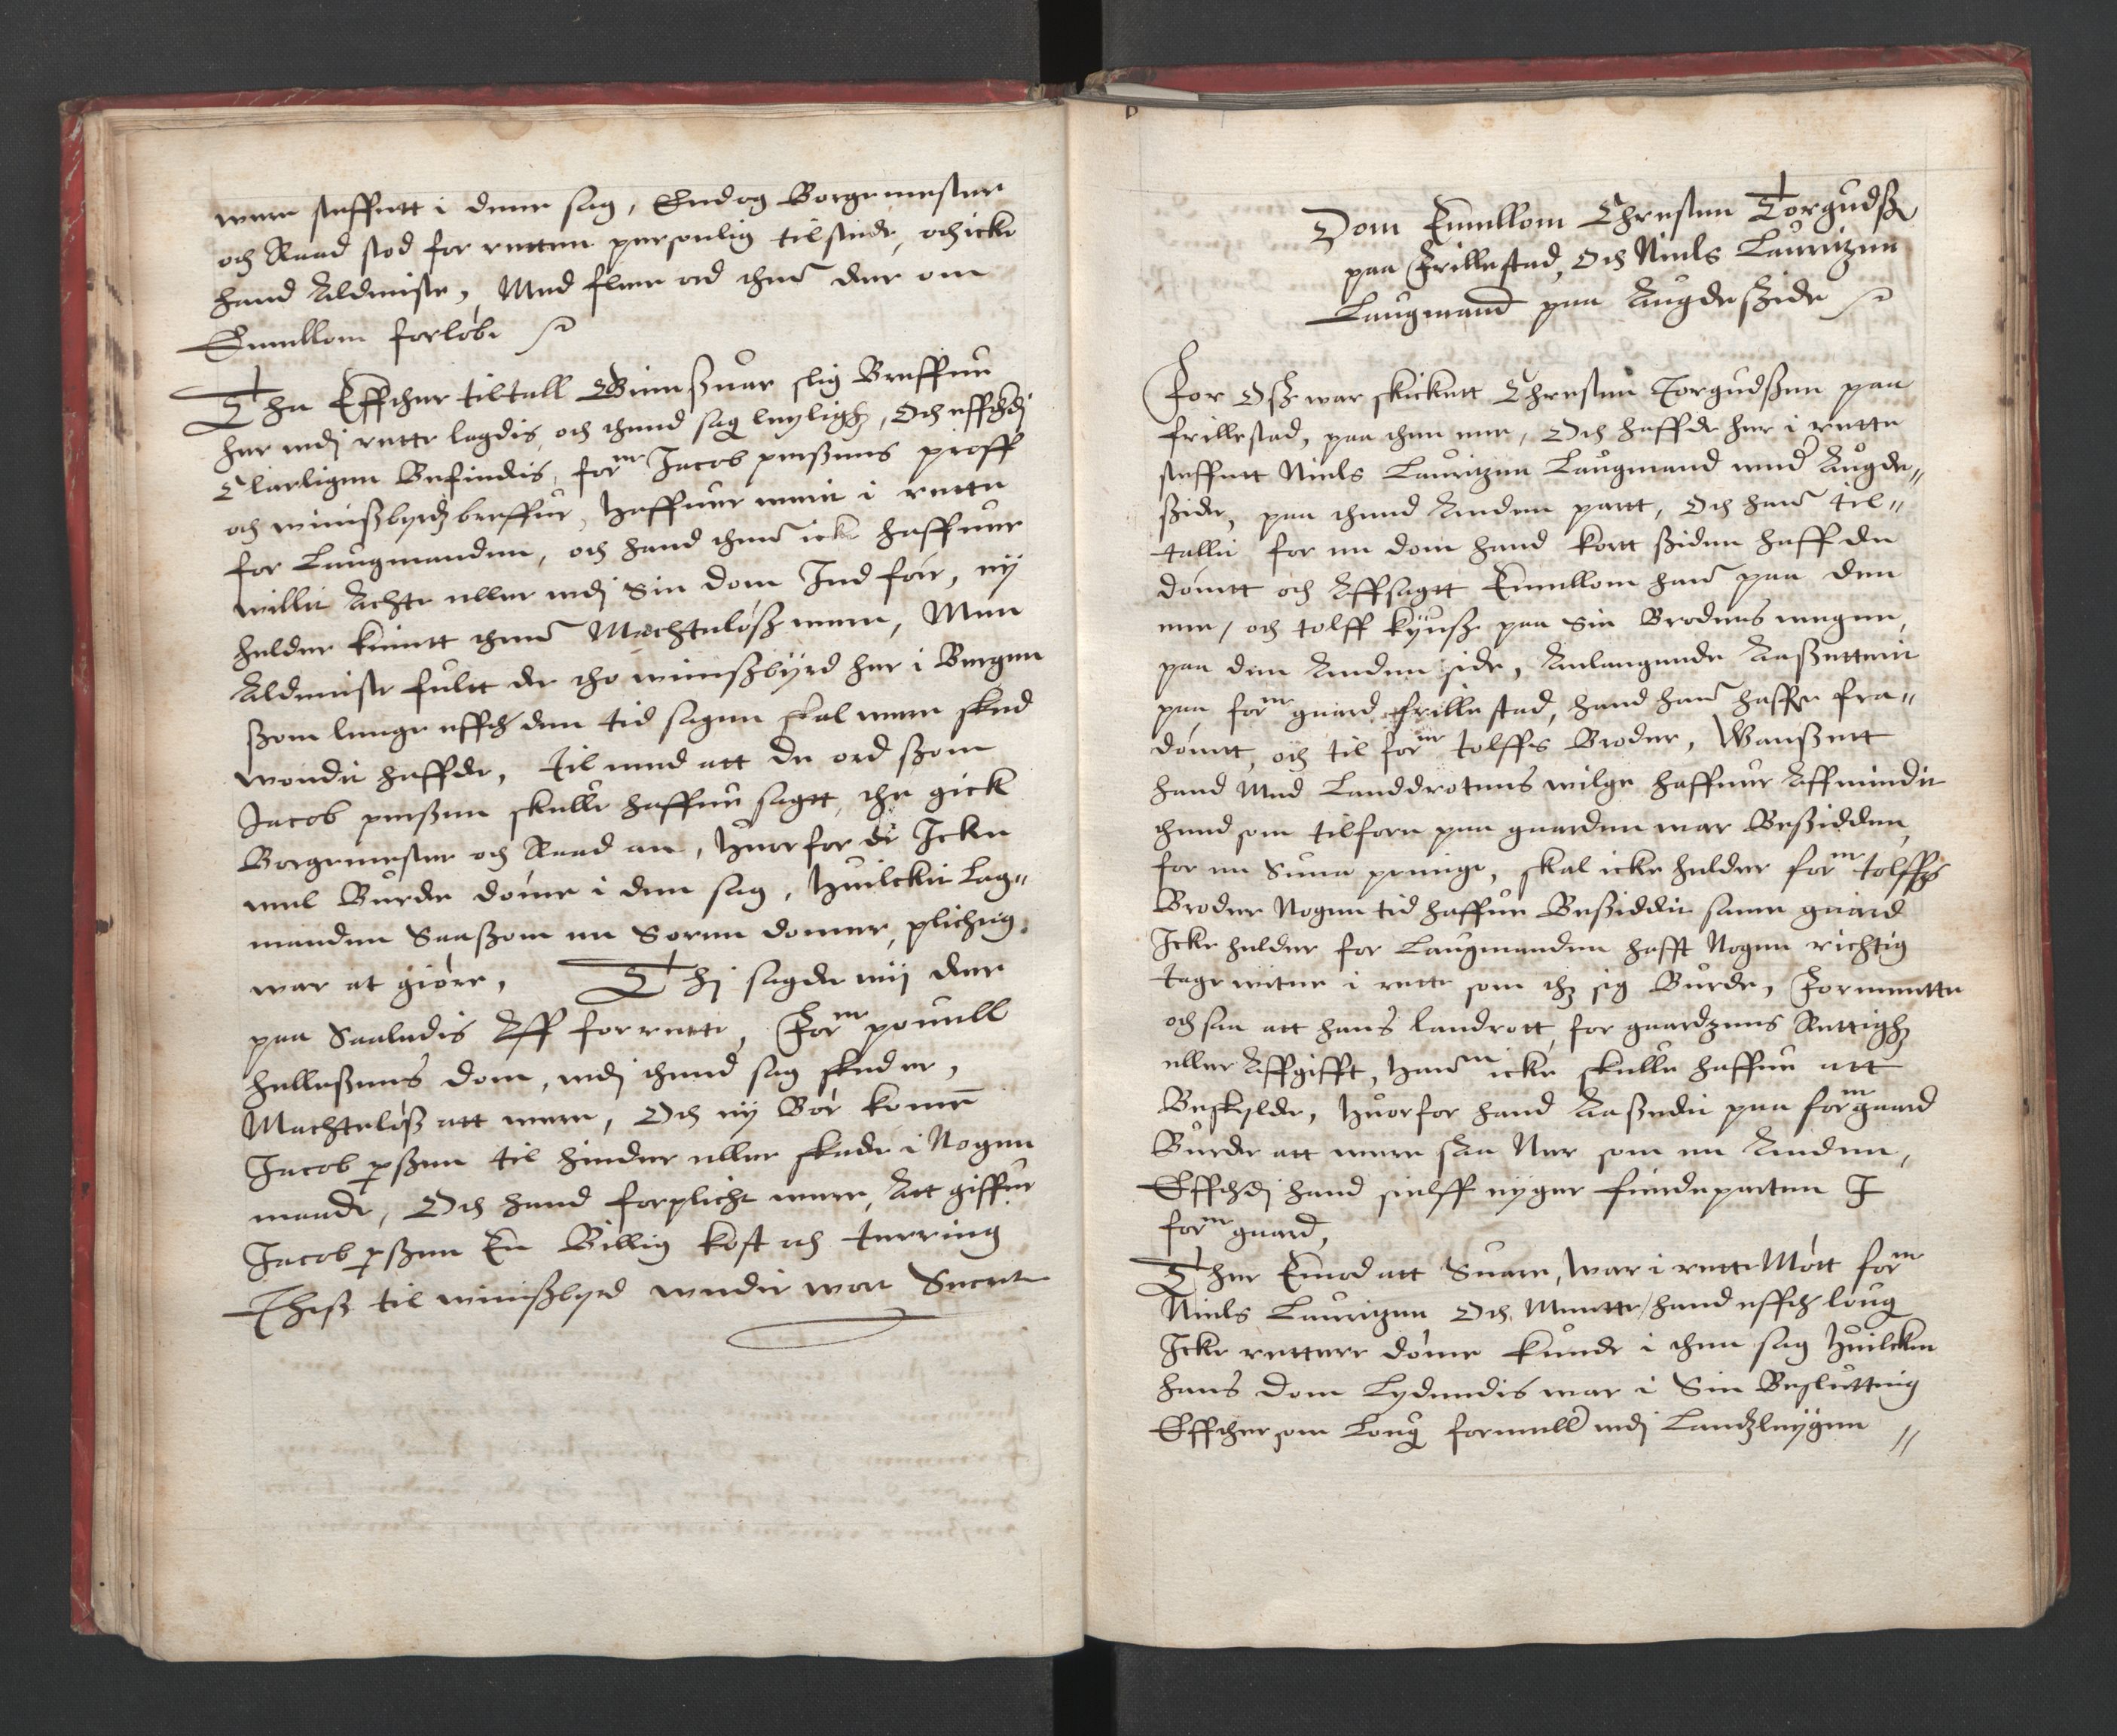 were steffnett i denne sag, Endog Borgemestere
och Raad stod for retten personlig tilstede, och icke
hand Aldeniste, Med flere ord thennom der om
Emellom forløbe
Tha Effther tiltall Giensuar slig Breffue
her udj rette lagdis, och thend sag leylighed, Och effterdj
Clarligen Befindis, forne Jacob perssens proff
och winisbyrdz breffue, Haffuer werit i rette
for Laugmanden, och hand thennom icke haffuer
willet Achte eller udj Sin dom Indført, ey
heller kient thennom Machteløss were, Men
Aldeniste fult de tho winissbyrd her i Bergen
ssom lenge effter den tid sagen skal were sked
wondit haffde, til med att de ord ssom
Jacob perssen skulle haffue sagtt, the gick
Borgemester och Raad an, Huorfor de Icke
wel Burde døme i den sag, Huilcket Lag-
manden Saassom en Soren domer, plichtig
war at giøre, Thj sagde wij der
paa Saaledis Aff for rette, Forne pouell
hellessens dom, udj thend sag sked er,
Machteløss att were, Och ey Bør komme
Jacob perssen til hinder eller skade i Nogen
maade, Och hand forplicht were, Att giffue
Jacob perssen En Billig kost och terring
Thess til winissbyrd under wort Secret
Dom Emellom Chresten Torgudss
paa Frillestad, Och Niels Lauritzen
Laugmand paa Augdesside
For Oss war skickett Chresten Torgudssen paa
frillestad, paa then ene, Och haffde her i rette
steffnett Niels Lauritzen Laugmand wed Augde-
sside, paa thend Anden partt, Och hannom til-
tallit for en dom hand kortt ssiden haffde
dømtt och Affsagtt Emellom hannom paa den
ene, och tolff kyuss paa Sin Broders wegne,
paa den Anden side, Anlangende Aassettenn
paa forne gaard frillestad, hand hannom haffer fra-
dømtt, och til forne tolffs Broder, Wansett
hand Med Landdrotens wilge haffuer Affwindit
thend som tilforn paa gaarden war Bessidden,
for en Suma penninge, skal icke heller forne tolffs
Broder Nogen tid haffue Bessiddit samme gaard
Icke heller for Laugmanden hafft Nogen richtig
tagewitne i rette som thet sig Burde, Formentte
och saa att hans landrott, for gaardzens Rettighed
eller Affgifft, Hannom icke skulle haffue att
Beskylde, Huorfor hand Aassedit paa forne gaard
Burde att were saa Ner som en Anden,
Effterdj hand sielff eyger fierdeparten I
forne gaard,
Ther Emod att Suare, war i rette Møtt forne
Niels Lauritzen Och Mentte hand effter loug
Icke rettere døme kunde i then sag Huilcken
hans dom Lydendis war i Sin Beslutting
Effther som Loug formeller udj Landzleygen